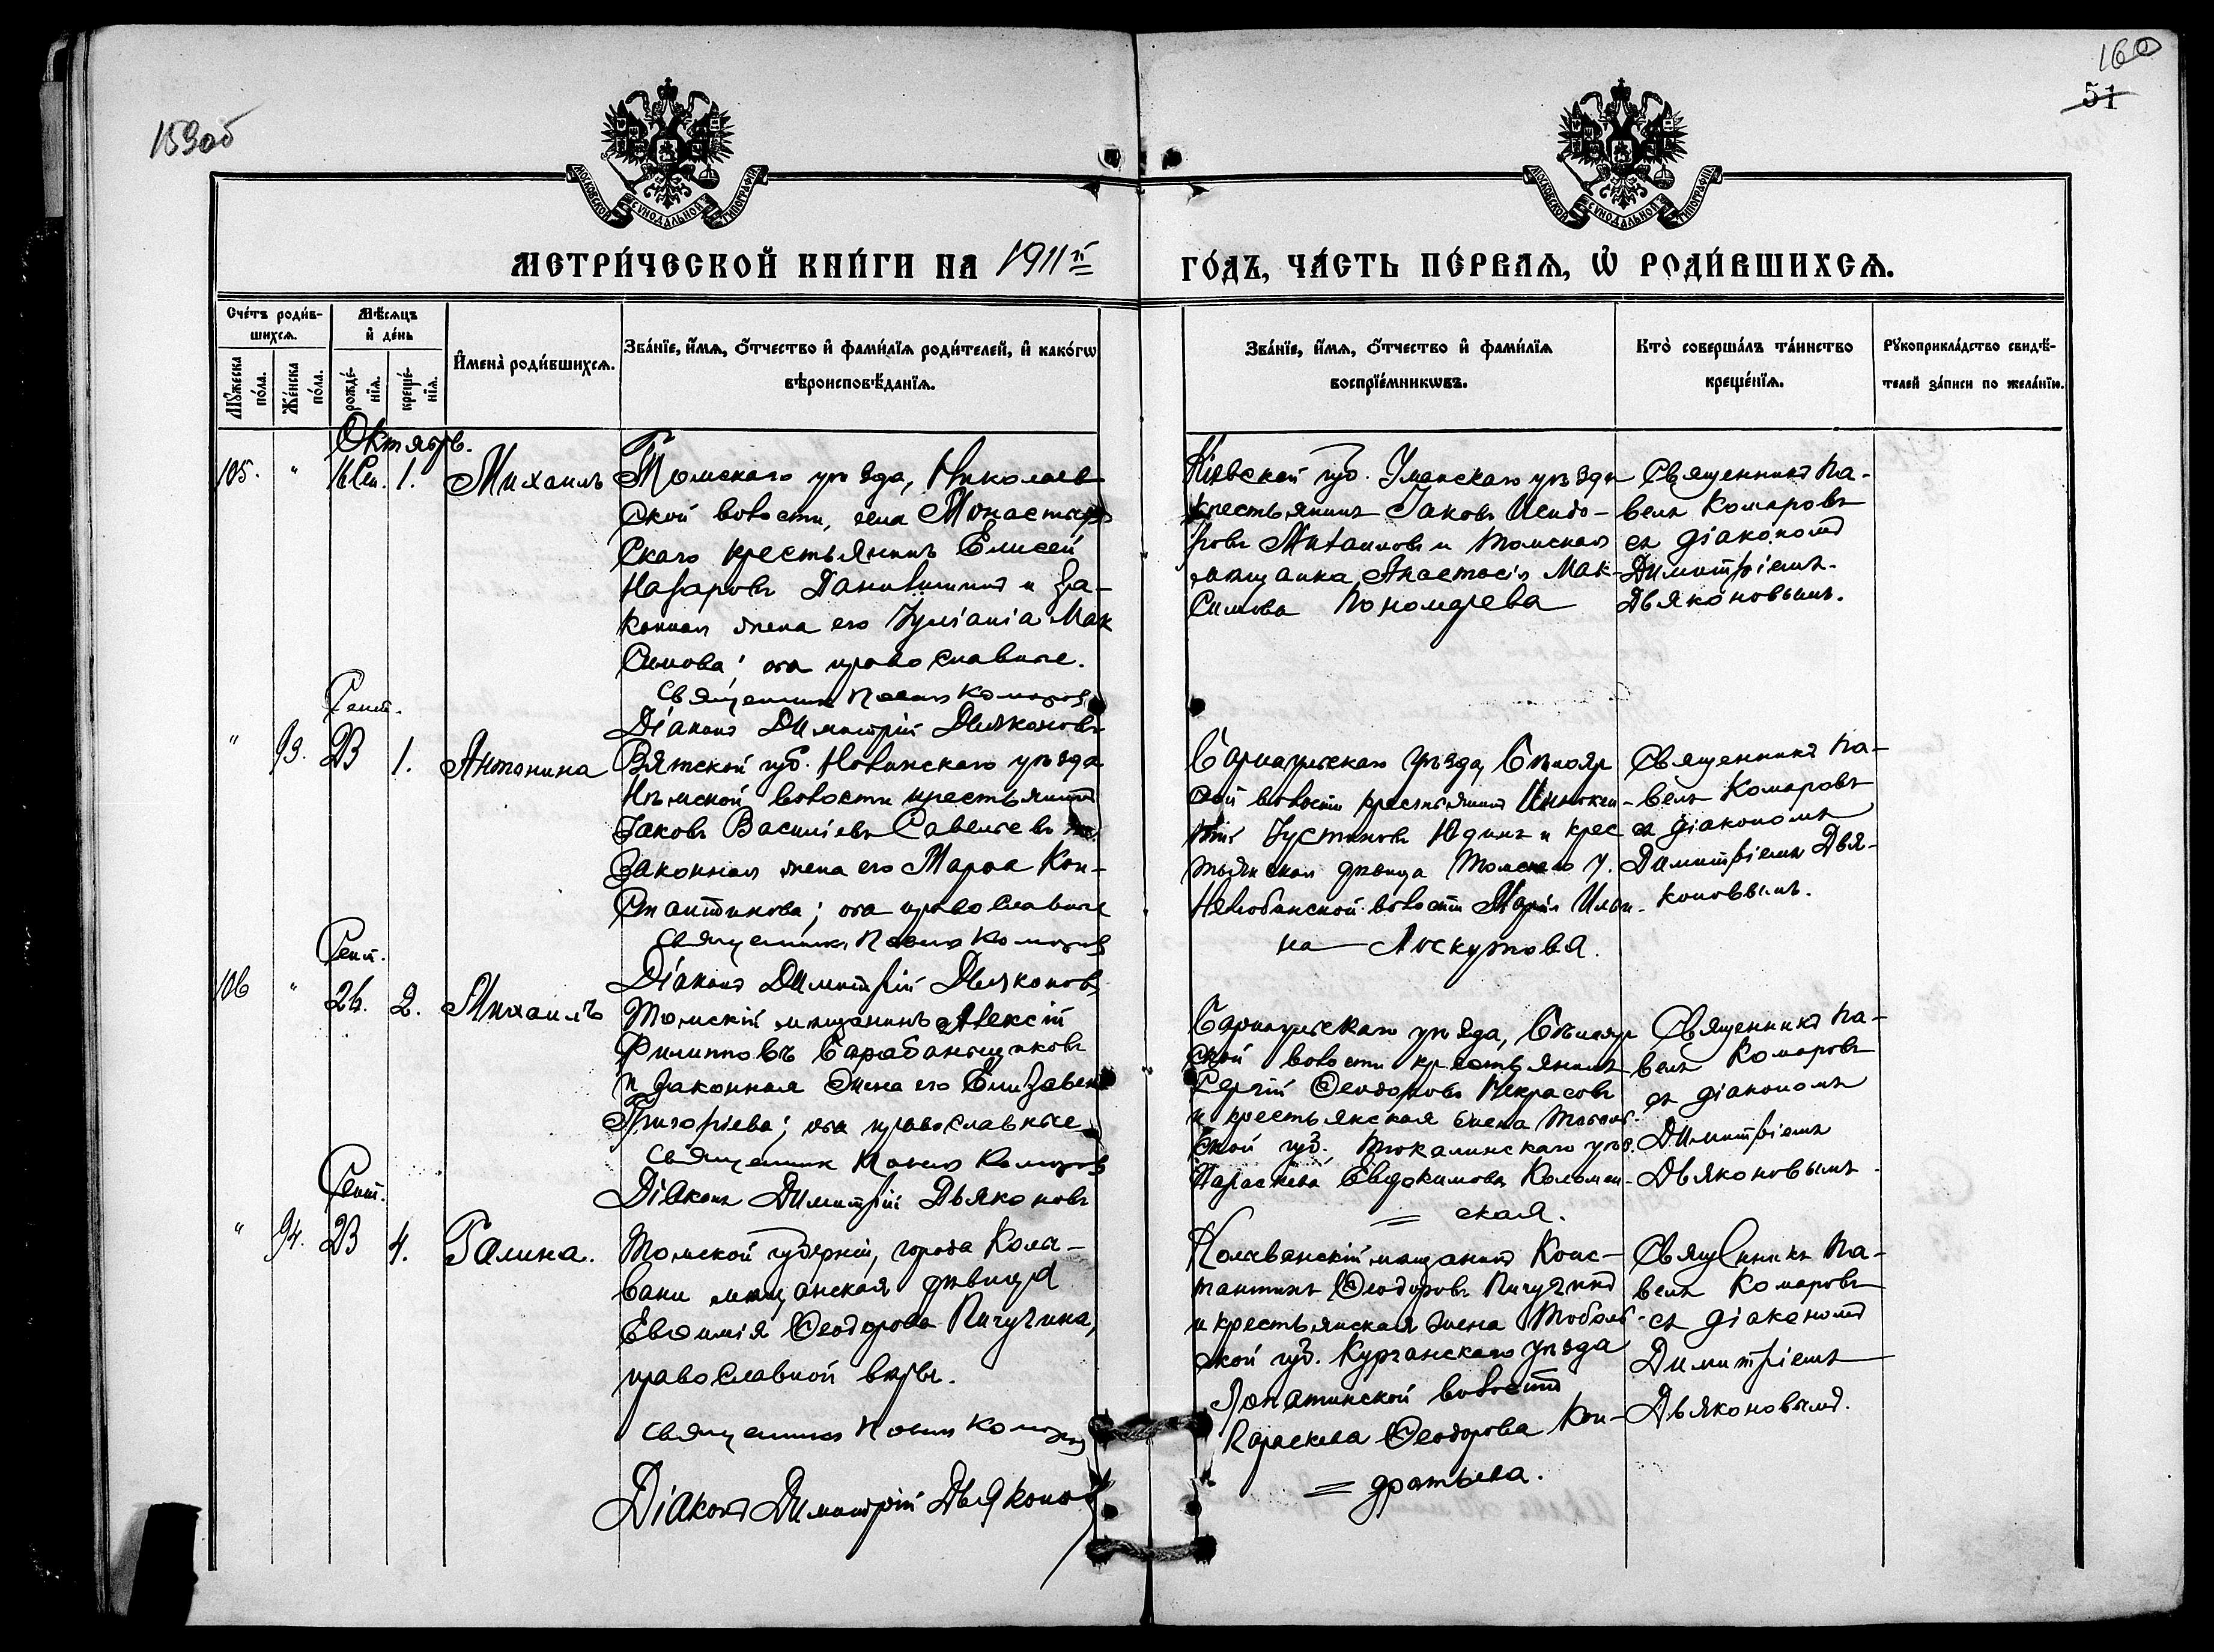 159об
160
51
МОСКОВСКОЙ СѴНОДАЛЬНОЙ ТИПОГРАФІИ
МОСКОВСКОЙ СѴНОДАЛЬНОЙ ТИПОГРАФІИ
МЕТРИ́ЧЕСКОЙ КНИ́ГИ НА 1911 й
ГО́ДЪ, ЧА́СТЬ ПЕ́РВАѦ, Ѡ РОДИ́ВШИХСѦ.
Сче́тъ роди́в-
шихсѧ.
Мꙋ́жеска по́ла.
Же́нска по́ла.
Мѣ́сѧцъ
и҆ де́нь
рожде́-
нїѧ.
креще́-
нїѧ.
И҆мена̀ роди́вшихсѧ.
Зва́нїе, и҆́мѧ, ѻ҆́тчество и҆ фами́лїѧ роди́телей, и҆ како́гѡ
вѣроисповѣ́данїѧ.
Зва́нїе, и҆́мѧ, ѻ҆́тчество и҆ фами́лїѧ
воспрїе́мникѡвъ.
Кто̀ соверша́лъ та́инство
креще́нїѧ.
Рꙋкоприкла́дство свидѣ́-
телей за́писи по жела́нїю.
Октябрь.
105. " 16 Сен. 1. Михаилъ
Томскаго уѣзда, Николаев
ской волости, села Монастыр
скаго крестьянинъ Елисей
Назаровъ Данильчинъ и за-
конная жена его Іуліанія Мак
симова; оба православные.
Священникъ Павелъ Комаровъ
Діаконъ Димитрій Дьяконовъ
Кіевской губ. Уманскаго уѣзда
крестьянинъ Іаковъ Исидо-
ровъ и томская
мѣщанка Анастасія Мак-
симова Пономарева
Священникъ Па-
велъ Комаровъ
съ діакономъ
Димитріемъ
Дьяконовымъ.
Сент.
" 93. 23 1. Антонина
Вятской губ. Нолинскаго уѣзда
Нѣмской волости крестьянинъ
Іаковъ Василіевъ Савельевъ и
законная жена его Марѳа Кон-
стантинова; оба православные
Священникъ Павелъ Комаровъ
Діаконъ Димитрій Дьяконовъ
Барнаульскаго уѣзда, Бѣлояр
ской волости крестьянинъ Иннокен-
тій Іустиновъ Юдинъ и крес
тьянская дѣвица Томскаго у.
Нелюбинской волости Марія Ильи-
на Лоскутова.
Священникъ Па-
велъ Комаровъ
съ діакономъ
Димитріемъ Дья-
коновымъ.
Сент.
106 " 26. 2. Михаилъ
Томскій мѣщанинъ Алексій
Филипповъ Барабанщиковъ
и законная жена его Елизавета
Григоріева; оба православные
Священникъ Павелъ Комаровъ
Діаконъ Димитрій Дьяконовъ
Барнаульскаго уѣзда, Бѣлояр
ской волости крестьянинъ
Сергій Ѳеодоровъ Некрасовъ
и крестьянская жена Тоболь
ской губ., Тюкалинскаго уѣз.
Параскева Евдокимова Коломен-
ская.
Священникъ Па-
велъ Комаровъ
съ діакономъ
Димитріемъ
Дьяконовымъ.
Сент.
" 94. 23 4. Галина.
Томской губерніи, города Колы-
вани мѣщанская дѣвица
Евѳимія Ѳеодорова Пичугина,
православной вѣры.
Священникъ Павелъ Комаровъ
Діаконъ Димитрій Дьяконовъ
Колыванскій мѣщанинъ Конс-
тантинъ Ѳеодоровъ Пичугинъ
и крестьянская жена Тоболь-
ской губ. Курганскаго уѣзда
Лопатинской волости
Параскева Ѳеодорова Кон-
дратьева.
Священникъ Па-
велъ Комаровъ
съ діакономъ
Димитріемъ
Дьяконовымъ.